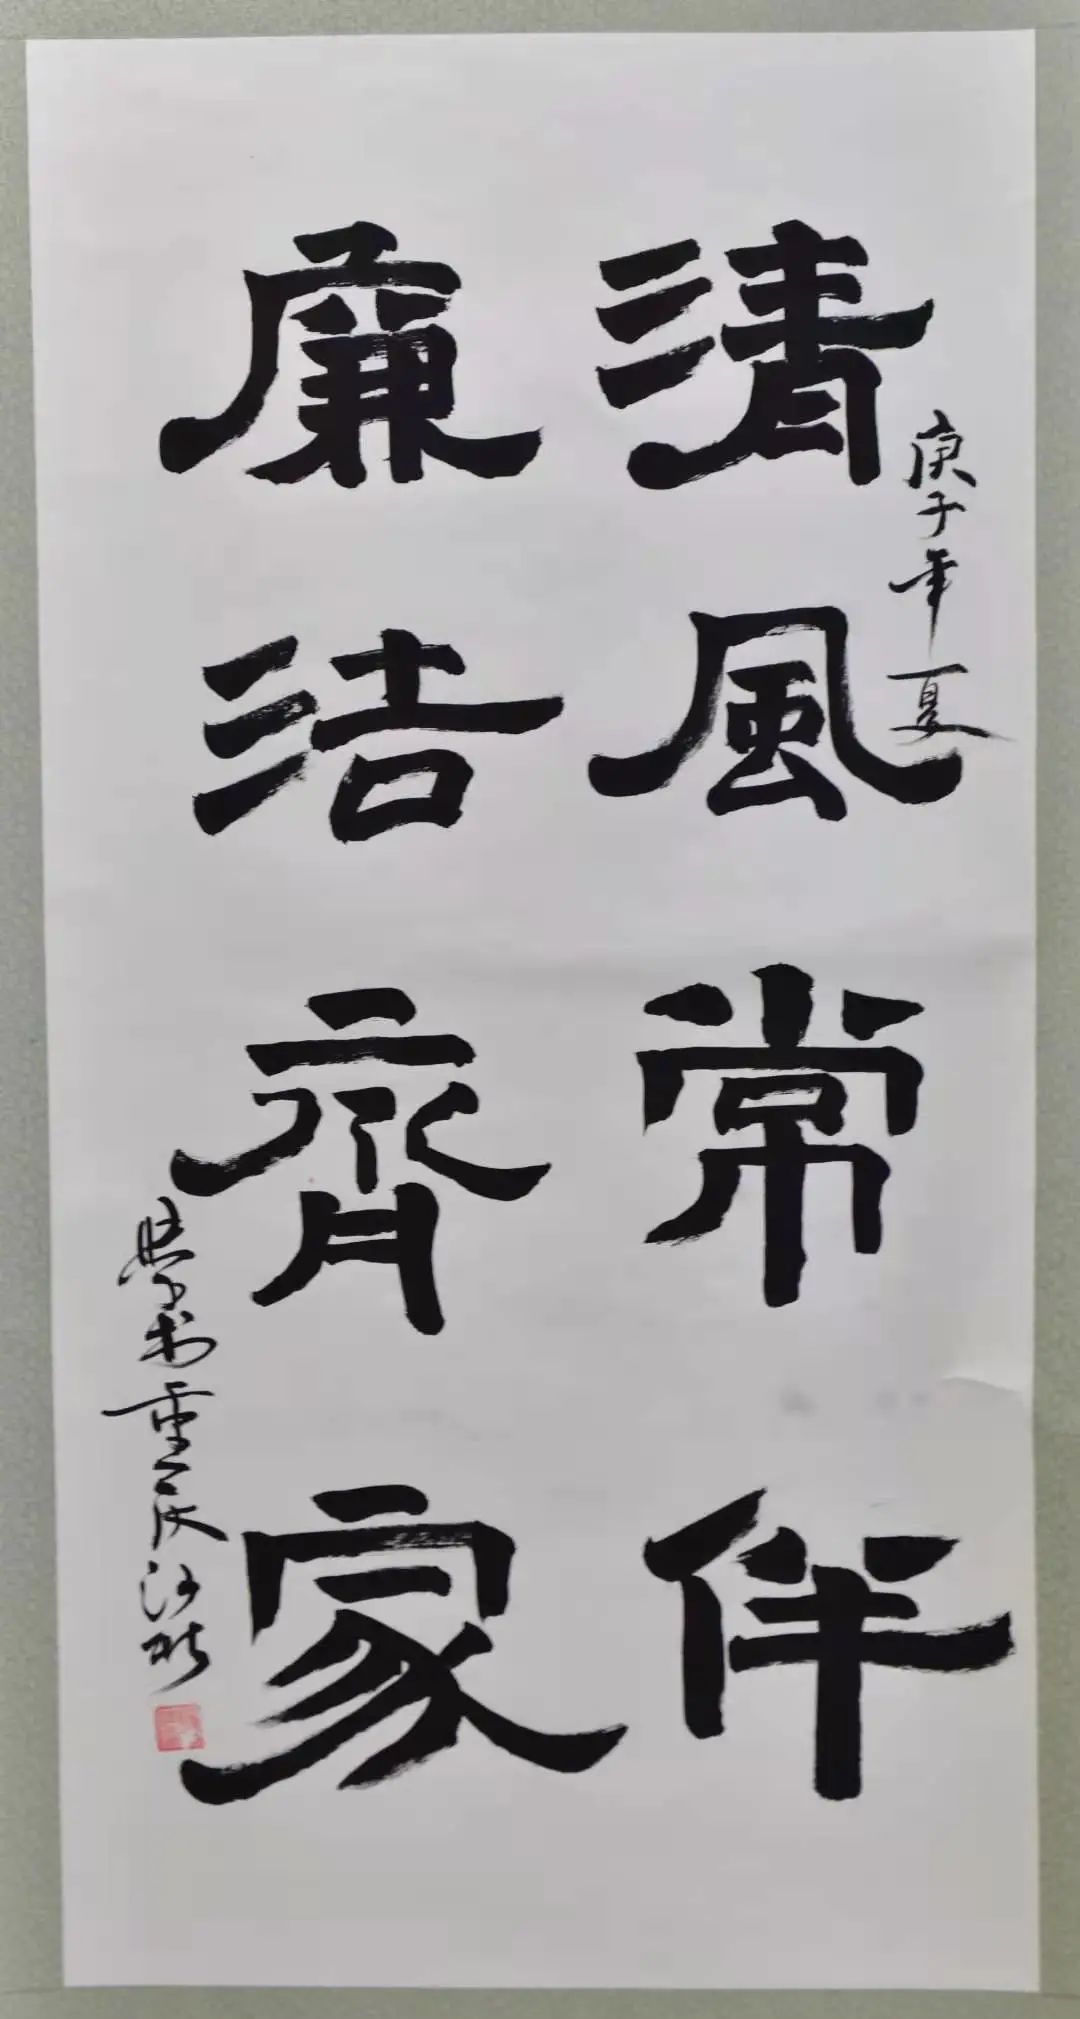 清風常伴
庚子年夏
廉洁齊家
學書重庆